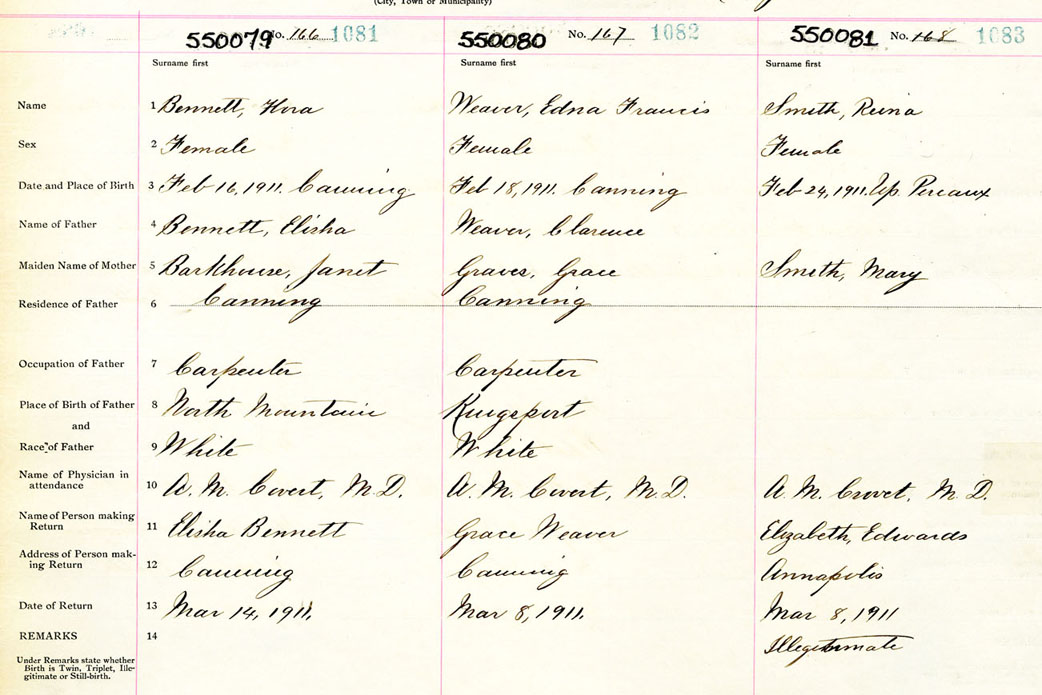 (City, Town or Municipality)
550079 No. 166 1081 550080 No. 167 1082 550081 No. 168 1083
Surname first Surname first Surname first
Name 1 Bennett, Hora Weaver, Edna Francis Smith, Reina
Sex 2 Female Female Female
Date and Place of Birth 3 Feb 16, 1911. Canning Feb 18, 1911. Canning Feb 24, 1911. Up. Pereaux
Name of Father 4 Bennett, Elisha Weaver, Clarence
Maiden Name of Mother 5 Barkhouse, Janet Graves, Grace Smith, Mary
Residence of Father 6 Canning Canning
Occupation of Father 7 Carpenter Carpenter
Place of Birth of Father 8 North Mountain Kingsport
and
Race of Father 9 White White
Name of Physician in
attendance 10 A. M. Covert, M.D. A. M. Covert, M.D. A. M. Crovet, M D.
Name of Person making
Return 11 Elisha Bennett Grace Weaver Elizabeth, Edwards
Address of Person mak-
ing Return 12 Canning Canning Annapolis
Date of Return 13 Mar 14, 1911. Mar 8, 1911. Mar 8, 1911
REMARKS 14 Illegitimate
Under Remarks state whether
Birth is Twin, Triplet, Ille-
gitimate or Still-birth.